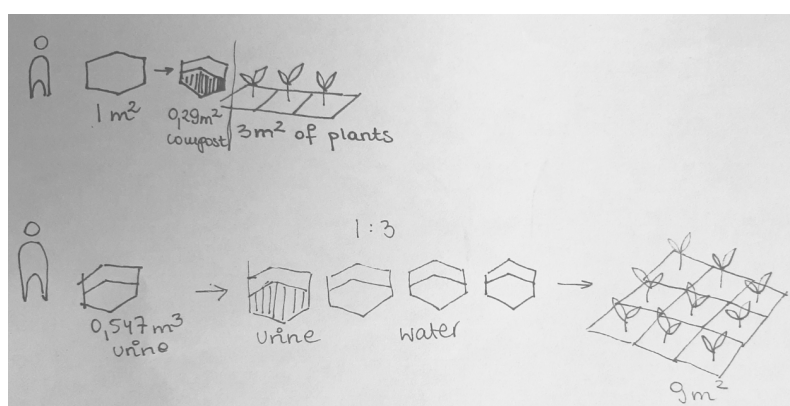 1 m²
0,29m²
compost
3m² of plants
1 : 3
0,547 m³
urine
urine
water
9m²